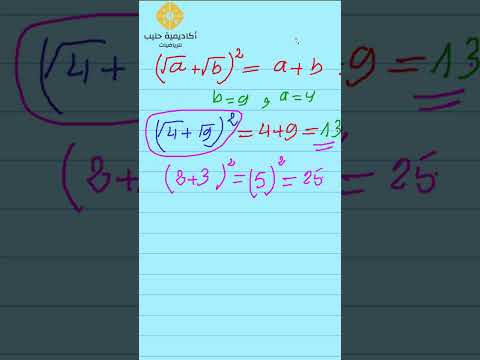 أكاديمية حنيب
للرياضيات
(√a + √b)² = a + b
b = 9 , a = 4
(√4 + √9)² = 4 + 9 = 13
(2 + 3)² = (5)² = 25
(√4
9 = 13